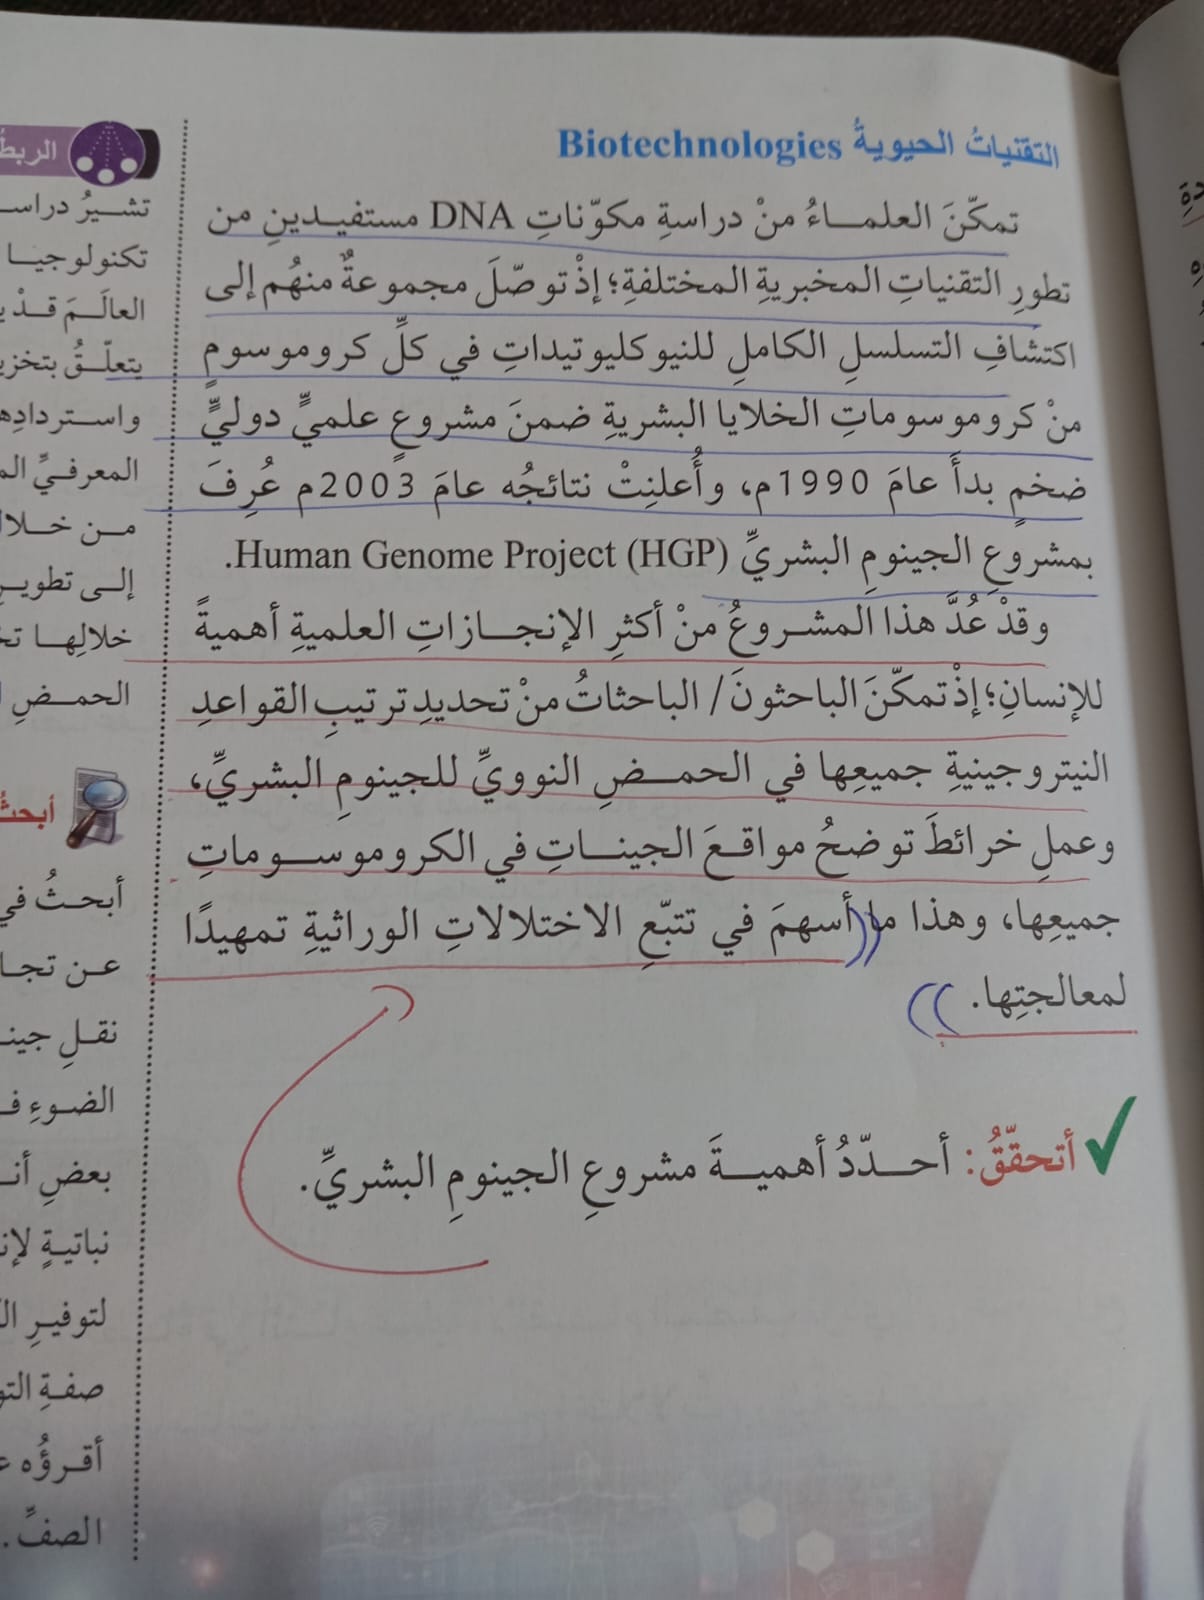 التقنياتُ الحيويةُ Biotechnologies
تمكّنَ العلمـاءُ منْ دراسةِ مكوّناتِ DNA مستفيدينِ من
تطورِ التقنياتِ المخبريةِ المختلفةِ؛ إذْ توصّلَ مجموعةٌ منهُم إلى
اكتشافِ التسلسلِ الكاملِ للنيوكليوتيداتِ في كلِّ كروموسومٍ
منْ كروموسوماتِ الخلايا البشريةِ ضمنَ مشروعٍ علميٍّ دوليٍّ
ضخمٍ بدأَ عامَ 1990م، وأُعلنِتْ نتائجُه عامَ 2003م عُرِفَ
بمشروعِ الجينومِ البشريِّ Human Genome Project (HGP).
وقدْ عُدَّ هذا المشروعُ منْ أكثرِ الإنجازاتِ العلميةِ أهميةً
للإنسانِ؛ إذْ تمكّنَ الباحثونَ/ الباحثاتُ منْ تحديدِ ترتيبِ القواعدِ
النيتروجينيةِ جميعِها في الحمضِ النوويِّ للجينومِ البشريِّ،
وعملِ خرائطَ توضحُ مواقعَ الجيناتِ في الكروموسوماتِ
جميعِها، وهذا ما أسهمَ في تتبّعِ الاختلالاتِ الوراثيةِ تمهيدًا
لمعالجتِها.
أتحقّقُ: أحدّدُ أهميةَ مشروعِ الجينومِ البشريِّ.
تشيرُ
تكنولوجيا
العالَمَ
يتعلّقُ
المعرفيِّ
من
إلى
خلالِها
أبحثُ في
عن
نقلِ
الضوءِ
بعضِ
نباتيةٍ
لتوفيرِ
صفةِ
أقرؤُه
الصفِّ.